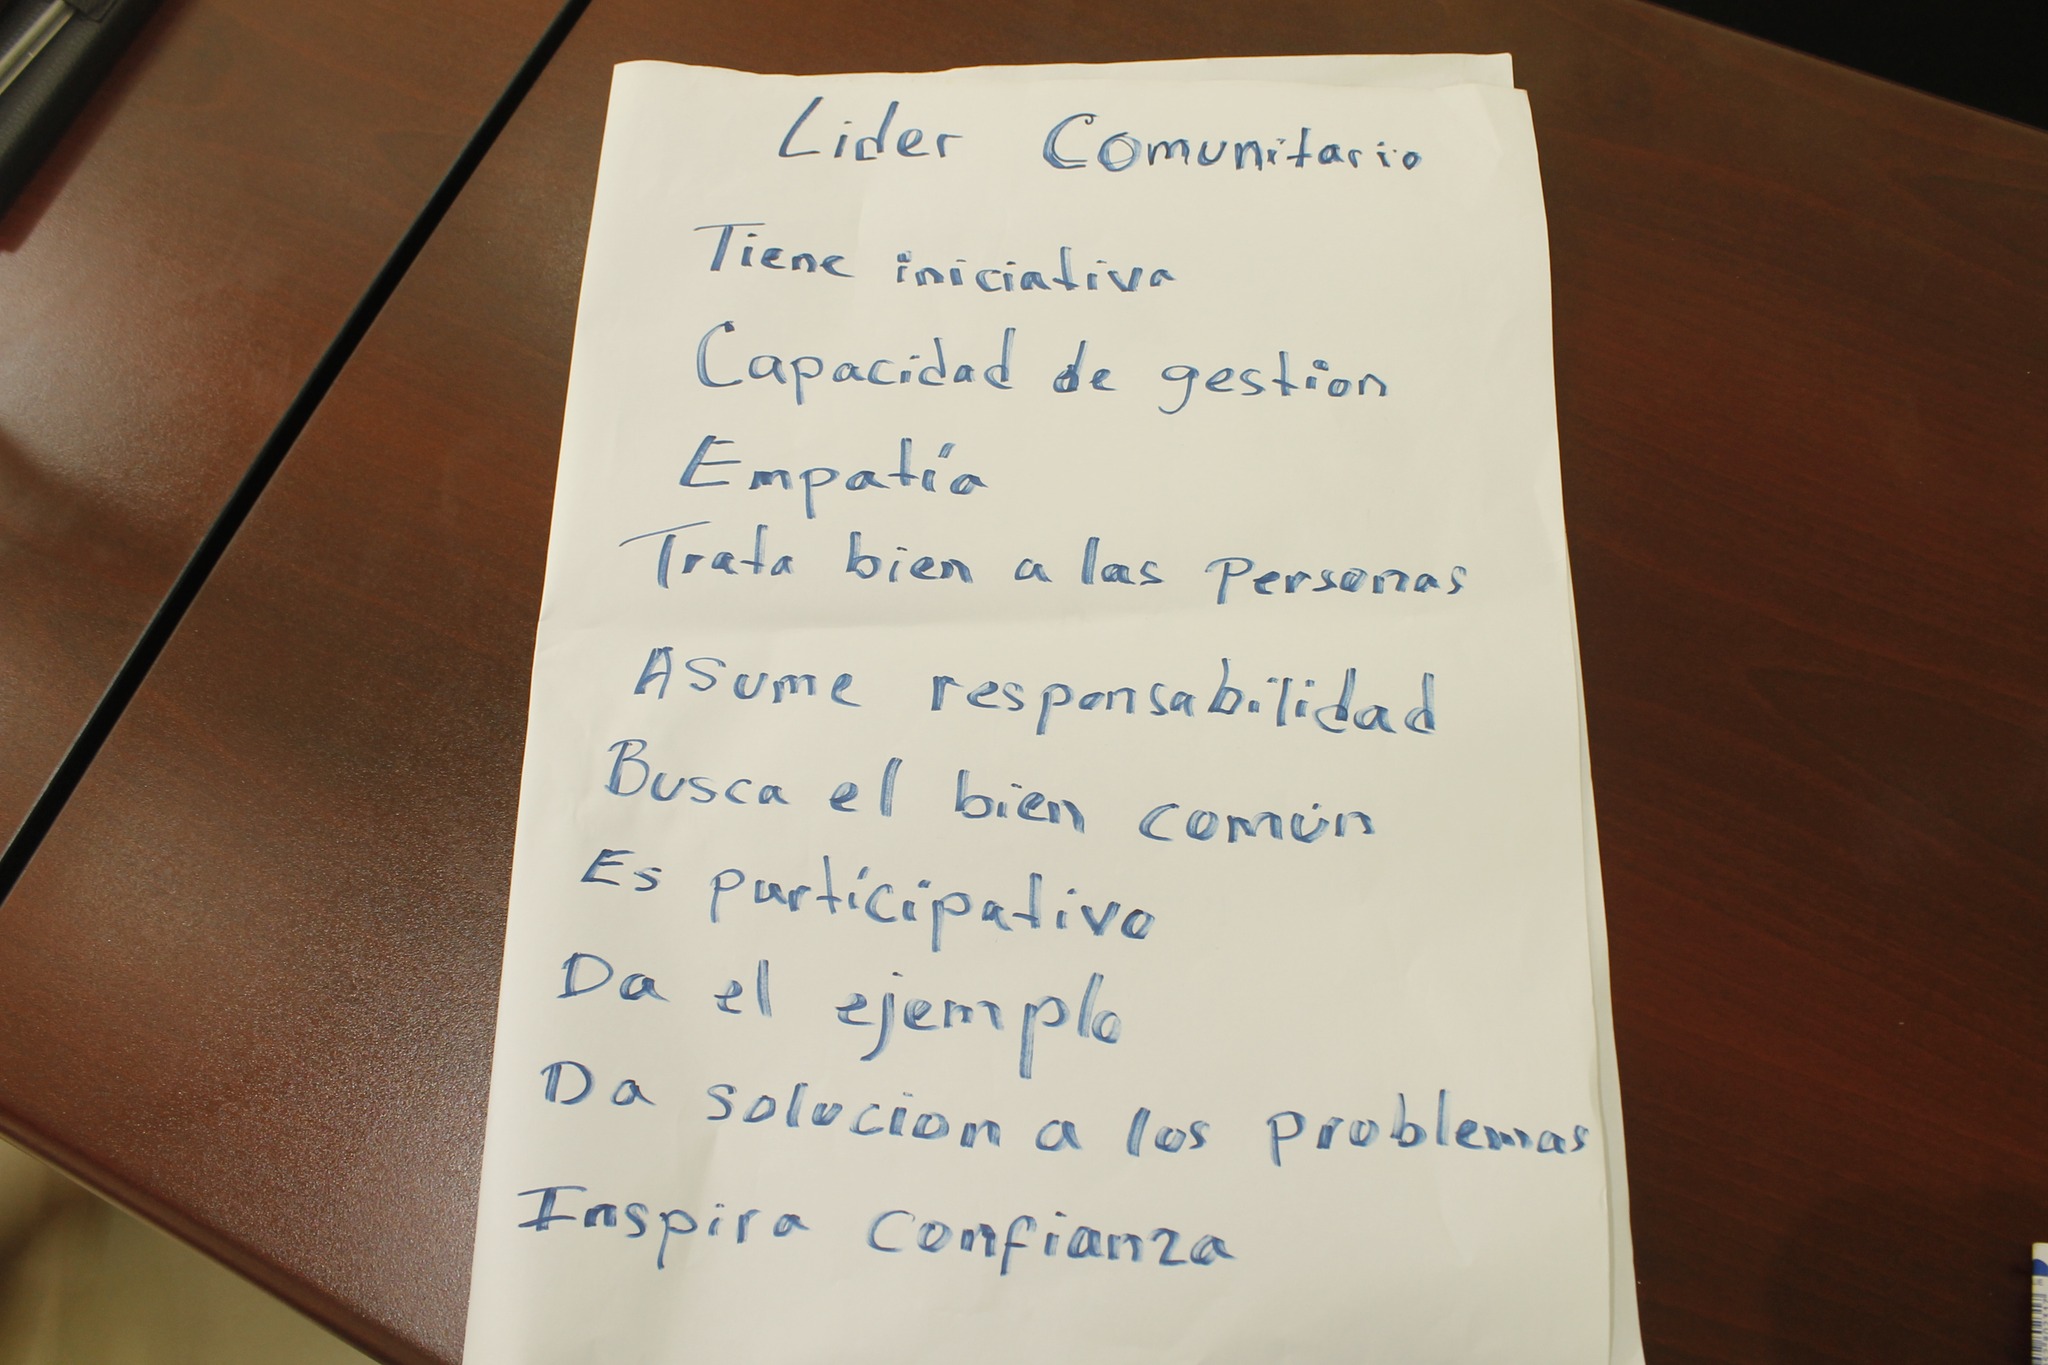 Lider Comunitario
Tiene iniciativa
Capacidad de gestion
Empatía
Trata bien a las personas
Asume responsabilidad
Busca el bien común
Es participativo
Da el ejemplo
Da solucion a los problemas
Inspira confianza